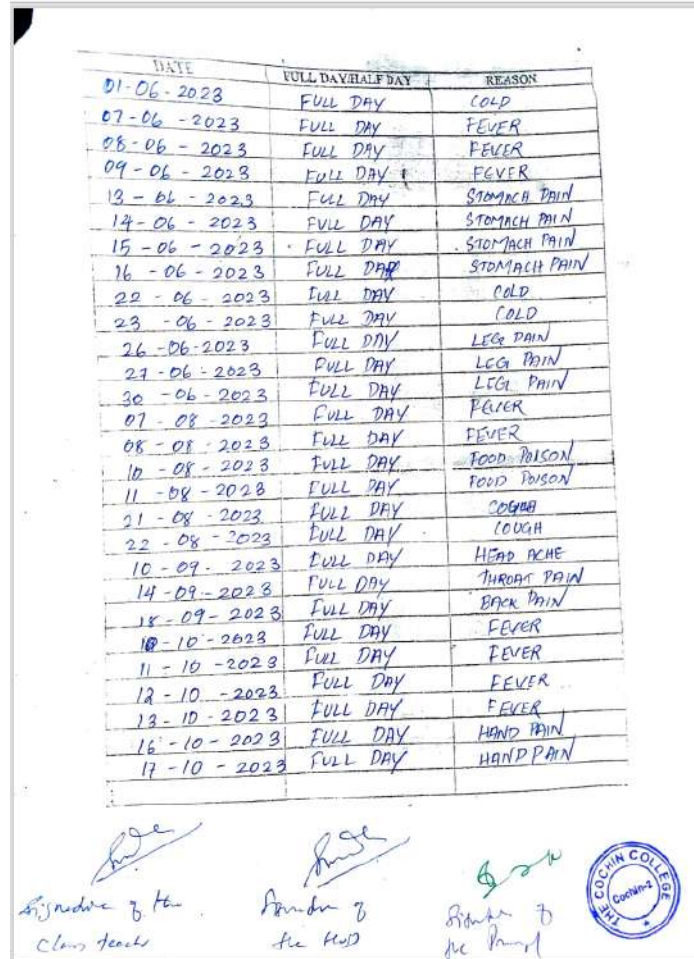 DATE FULL DAY/HALF DAY REASON
01-06-2023 FULL DAY COLD
07-06-2023 FULL DAY FEVER
08-06-2023 FULL DAY FEVER
09-06-2023 FULL DAY FEVER
13-06-2023 FULL DAY STOMACH PAIN
14-06-2023 FULL DAY STOMACH PAIN
15-06-2023 FULL DAY STOMACH PAIN
16-06-2023 FULL DAY STOMACH PAIN
22-06-2023 FULL DAY COLD
23-06-2023 FULL DAY COLD
26-06-2023 FULL DAY LEG PAIN
27-06-2023 FULL DAY LEG PAIN
30-06-2023 FULL DAY LEG PAIN
07-08-2023 FULL DAY FEVER
08-08-2023 FULL DAY FEVER
10-08-2023 FULL DAY FOOD POISON
11-08-2023 FULL DAY FOOD POISON
21-08-2023 FULL DAY COUGH
22-08-2023 FULL DAY COUGH
10-09-2023 FULL DAY HEAD ACHE
14-09-2023 FULL DAY THROAT PAIN
18-09-2023 FULL DAY BACK PAIN
10-10-2023 FULL DAY FEVER
11-10-2023 FULL DAY FEVER
12-10-2023 FULL DAY FEVER
13-10-2023 FULL DAY FEVER
16-10-2023 FULL DAY HAND PAIN
17-10-2023 FULL DAY HAND PAIN
Signature of the
Class teacher
Signature of
the HoD
Signature of
the
THE COCHIN COLLEGE
Cochin-2